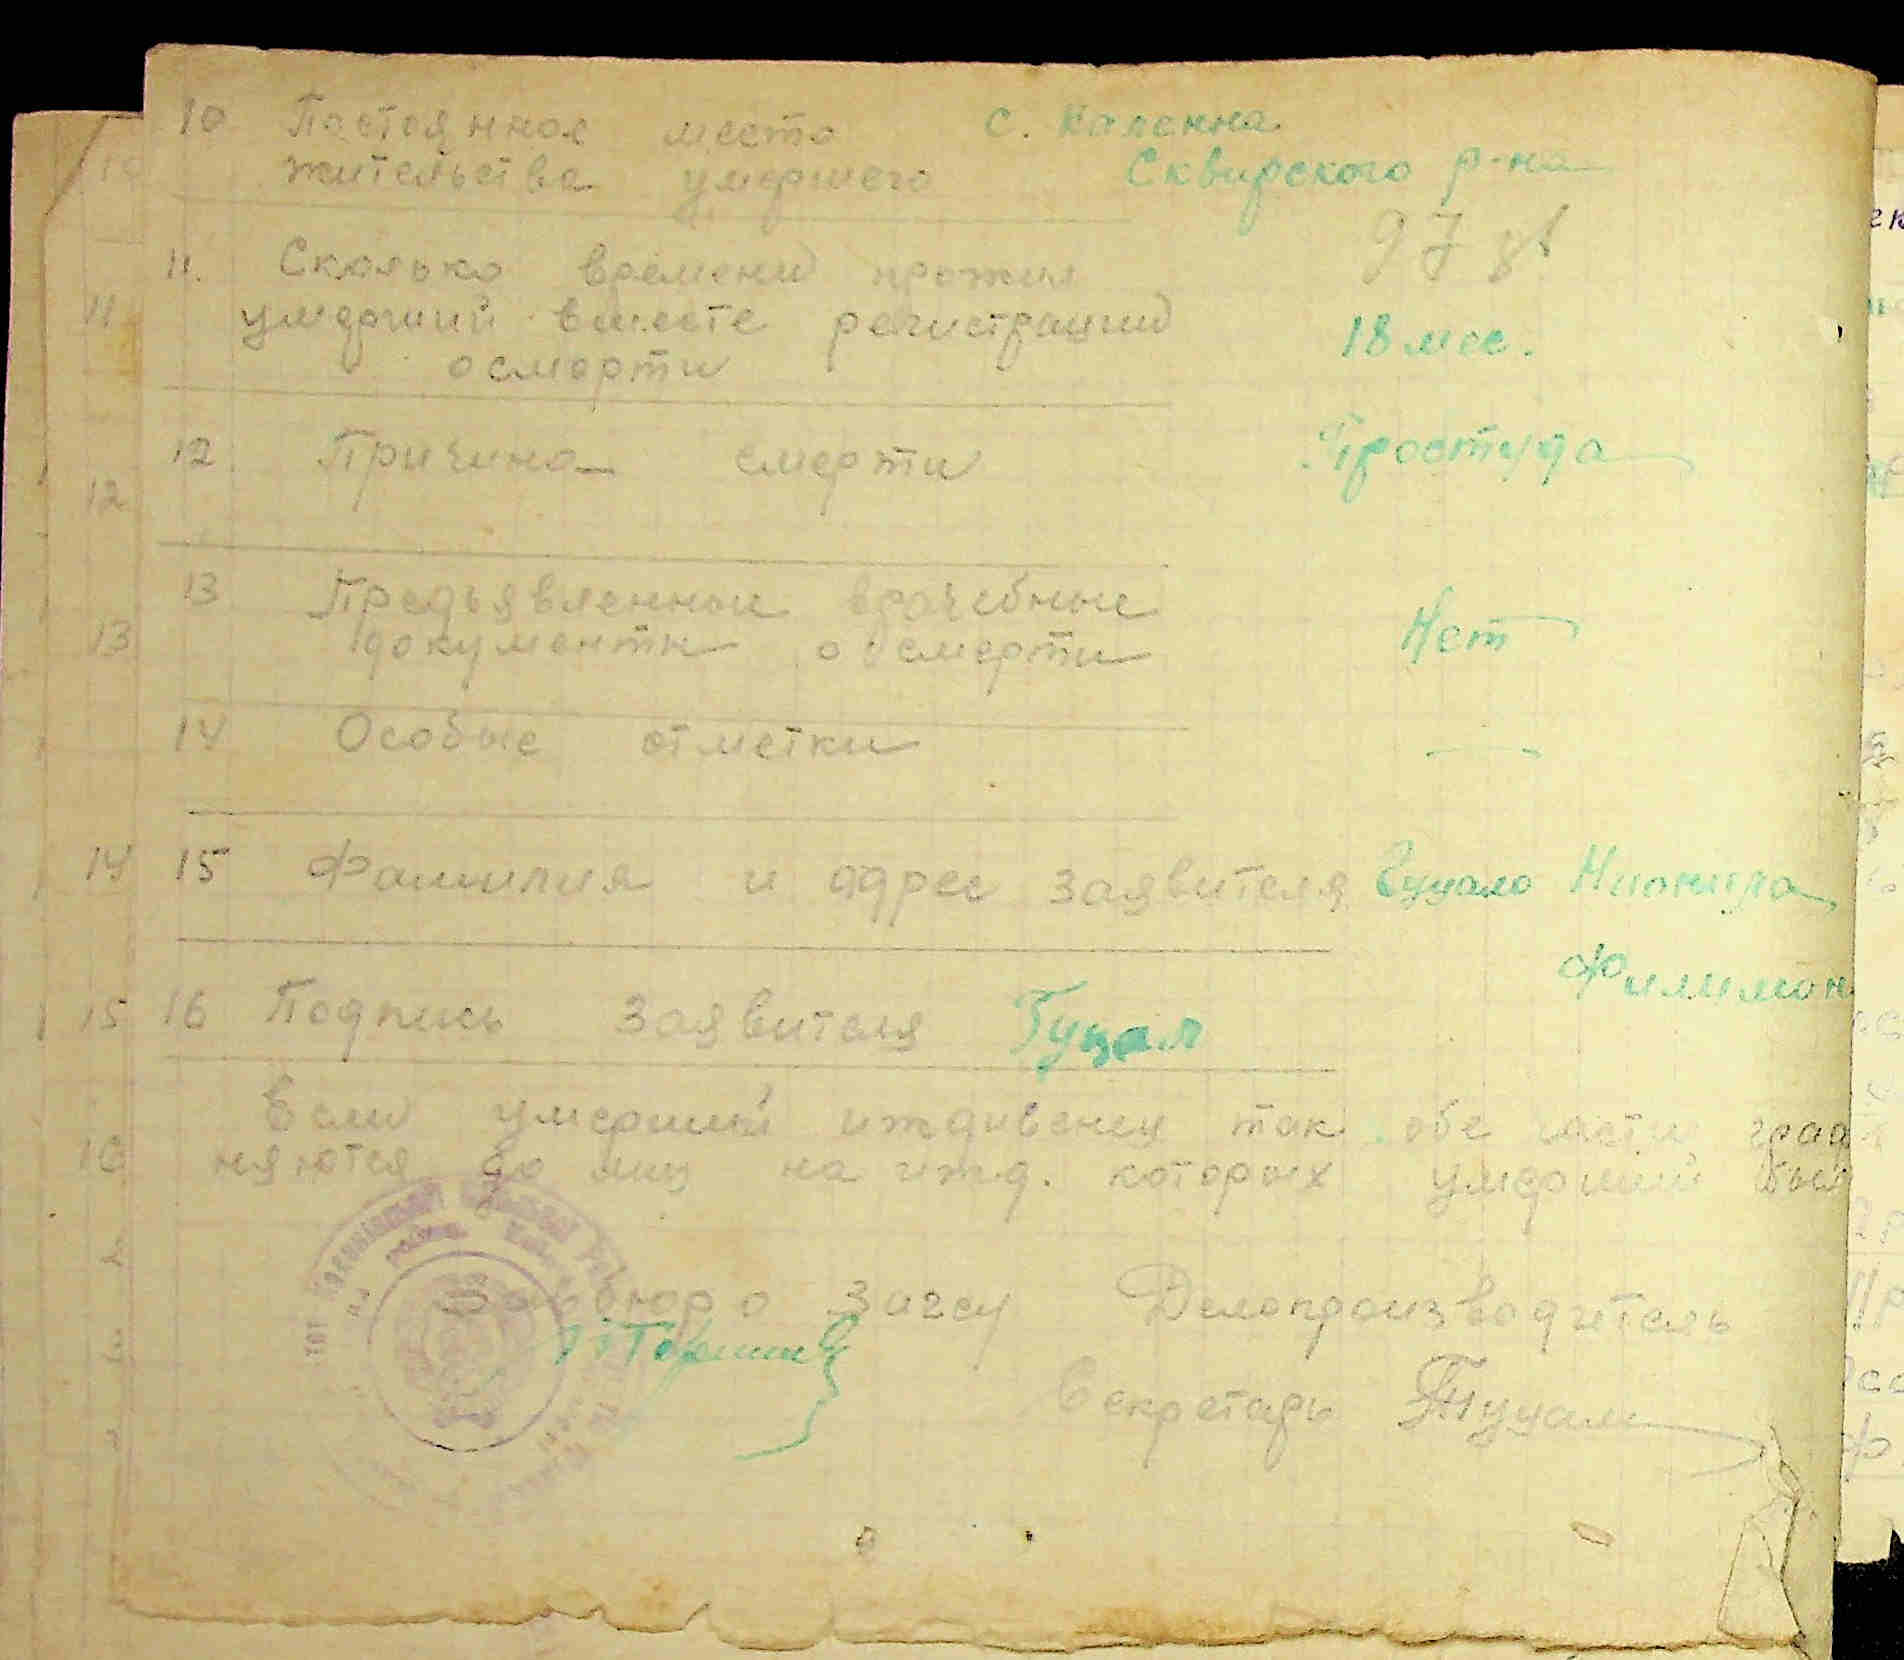 10 Постоянное место с. Каленна
жительства умершего Сквирского р-на
97
11. Сколько времени прожил
умерший вместе регистрации 18 мес.
осмерти
12 Причина смерти Простуда
13 Предъявленные врачебные
документы о смерти Нет
14 Особые отметки —
15 Фамилия и адрес заявителя
Филимон
16 Подпись заявителя Гуцал
Если умерший иждивенец так обе части граф
няются до лиц на ижд. которых умерший был
Зав бюро Загсу Делопроизводитель
Секретарь